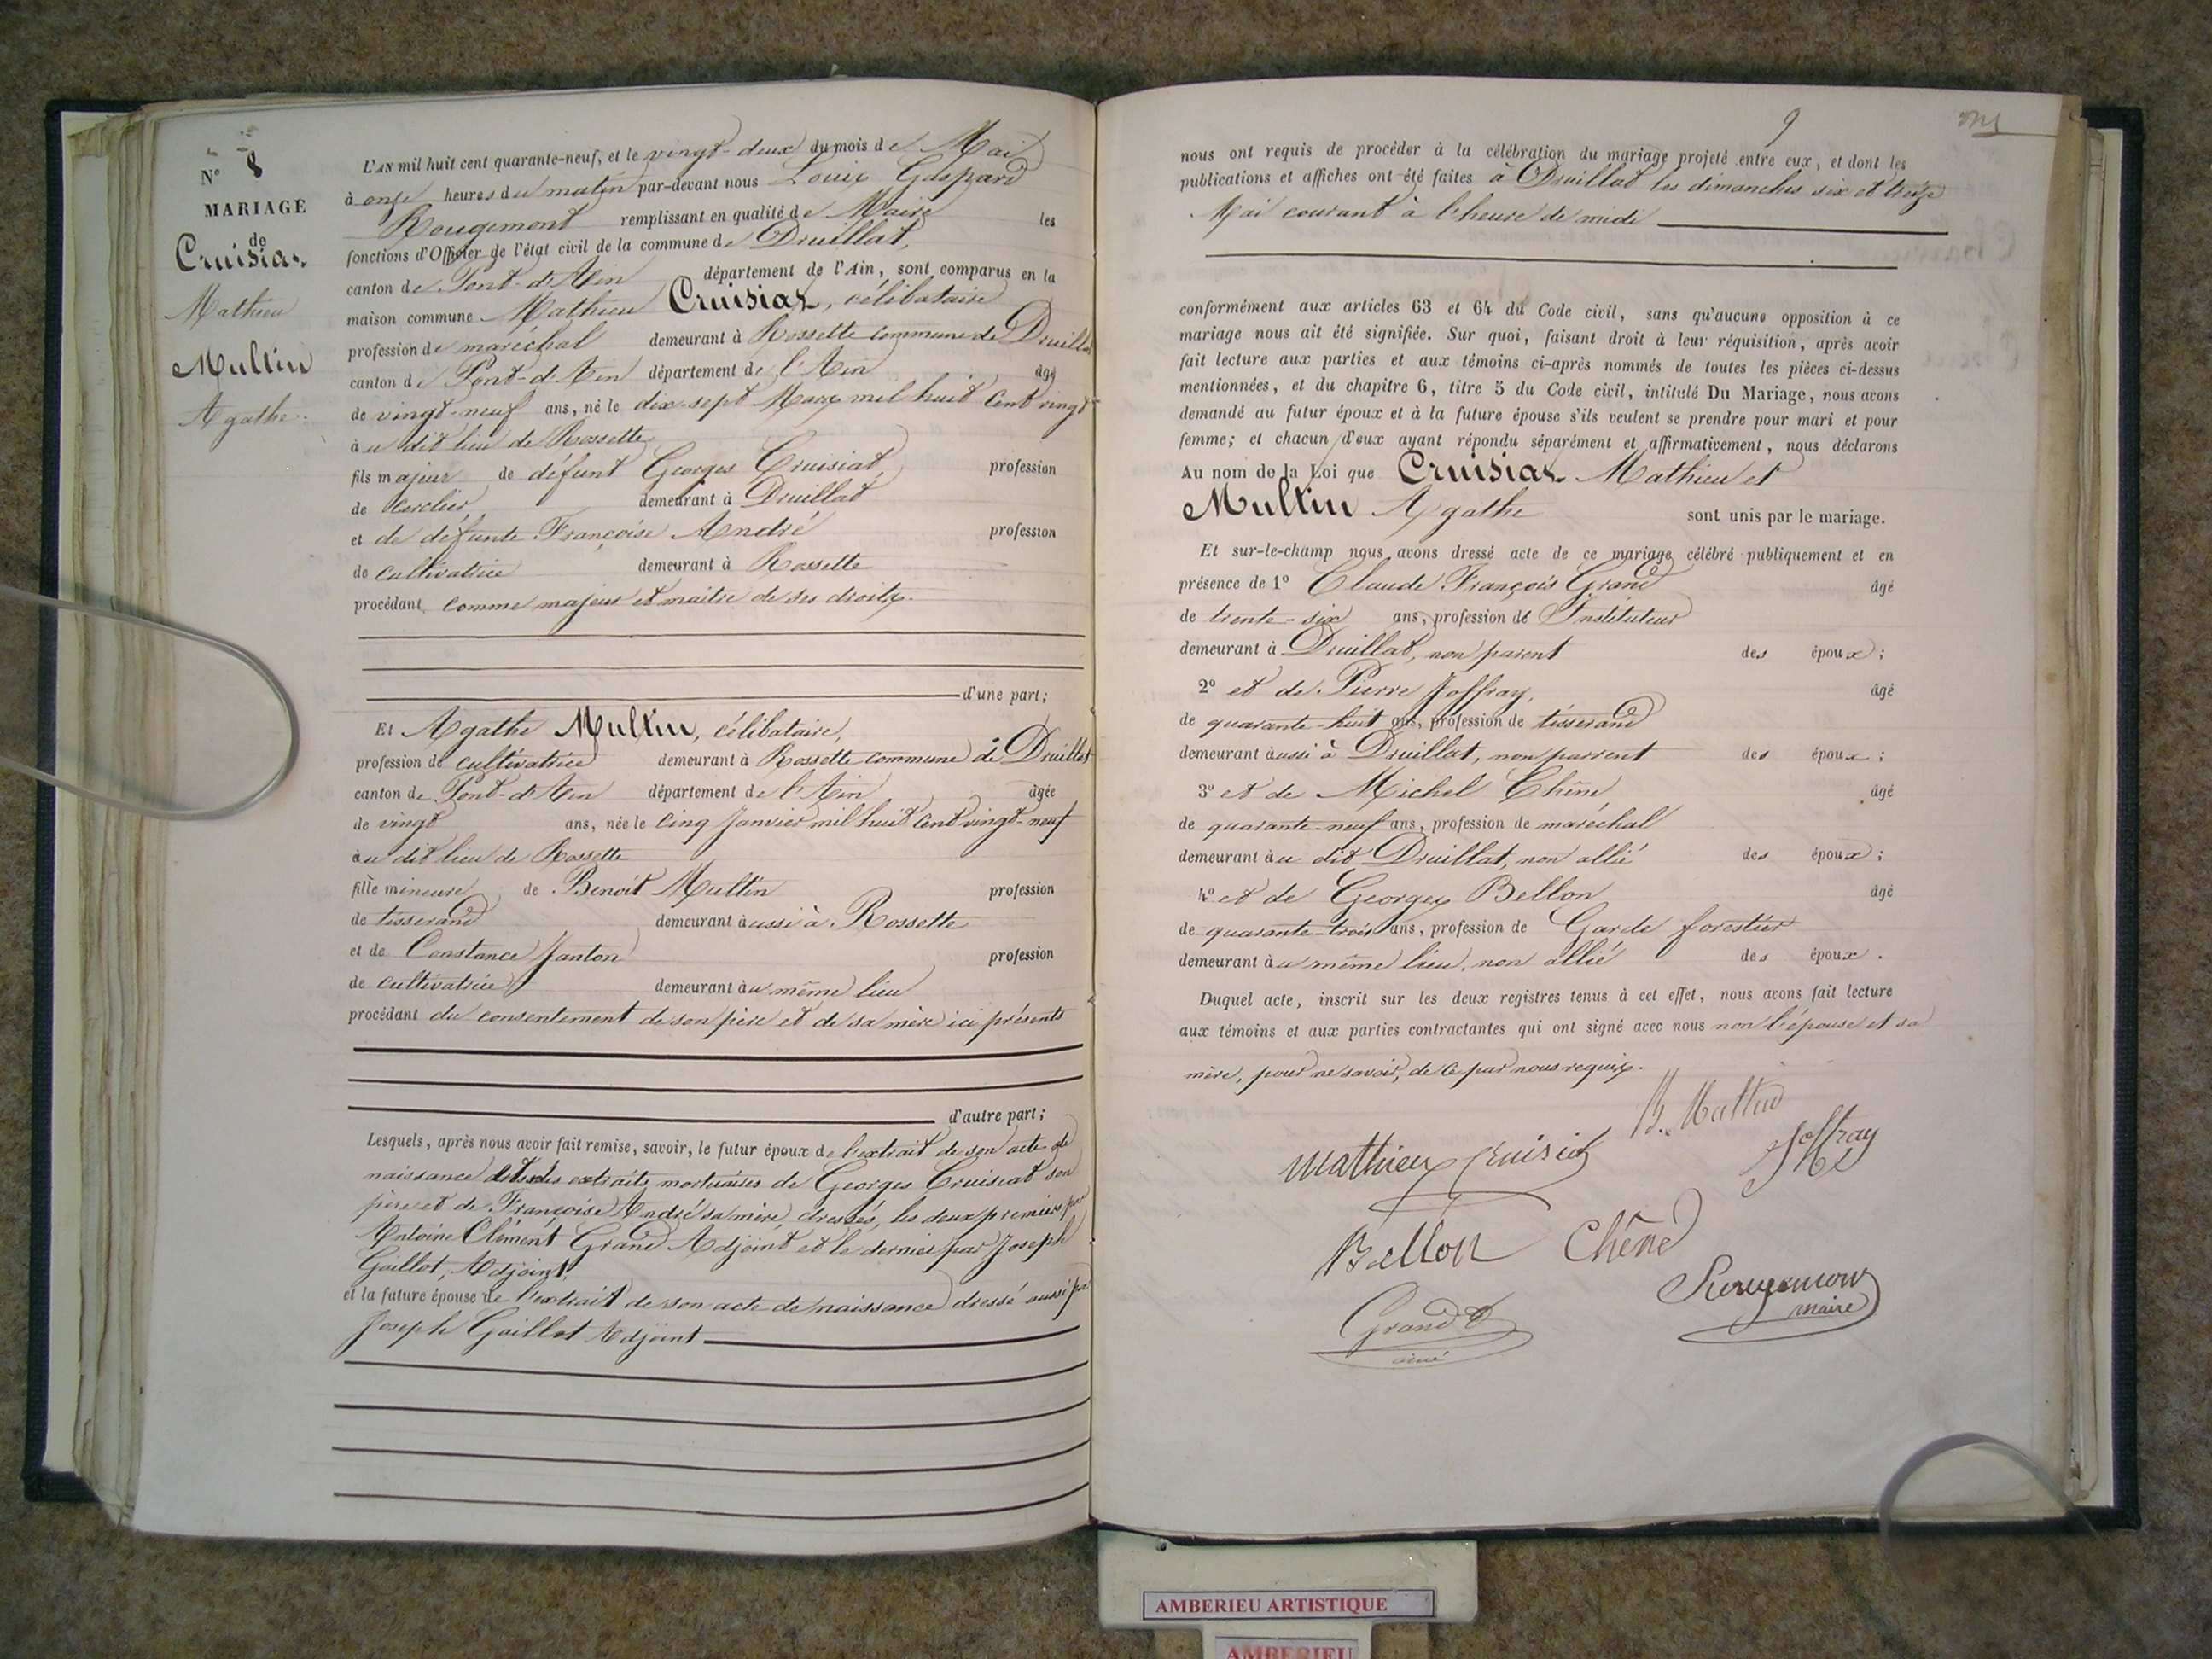 N° 8
MARIAGE
de
Cruisiat
Mathieu
Multin
Agathe.
L'AN mil huit cent quarante-neuf, et le vingt-deux du mois de Mai
à onze heures du matin par-devant nous Louis Gaspard
Rougemont remplissant en qualité de Maire les
fonctions d'Officier de l'état civil de la commune de Druillat,
canton de Pont-d'Ain département de l'Ain, sont comparus en la
maison commune Mathieu Cruisiat, célibataire
profession de maréchal demeurant à Rossette commune de Druillat
canton de Pont-d'Ain département de l'Ain âgé
de vingt-neuf ans, né le dix-sept Mars mil huit cent vingt
à u dit lieu de Rossette
fils majeur de défunt Georges Cruisiat, profession
de cerclier, demeurant à Druillat
et de défunte Françoise André profession
de cultivatrice demeurant à Rossette
procédant comme majeur et maître de ses droits.
d'une part;
Et Agathe Multin, célibataire,
profession de cultivatrice demeurant à Rossette commune de Druillat
canton de Pont-d'Ain département de l'Ain âgée
de vingt ans, née le cinq Janvier mil huit cent vingt-neuf
àu dit lieu de Rossette
fille mineure de Benoît Multin profession
de tisserand demeurant àussi à Rossette
et de Constance Janton profession
de cultivatrice demeurant àu même lieu
procédant du consentement de son père et de sa mère ici présents
d'autre part;
Lesquels, après nous avoir fait remise, savoir, le futur époux de l'extrait de son acte de
naissance extraits mortuaires de Georges Cruisiat son
père et de Françoise André sa mère, dressés, les deux premiers par
Antoine Clément Grand Adjoint et le dernier par Joseph
Gaillot, Adjoint,
et la future épouse de l'extrait de son acte de naissance dressé aussi par
Joseph Gaillot Adjoint
9
nous ont requis de procéder à la célébration du mariage projeté entre eux, et dont les
publications et affiches ont été faites à Druillat les dimanches six et treize
Mai courant à l'heure de midi
conformément aux articles 63 et 64 du Code civil, sans qu'aucune opposition à ce
mariage nous ait été signifiée. Sur quoi, faisant droit à leur réquisition, après avoir
fait lecture aux parties et aux témoins ci-après nommés de toutes les pièces ci-dessus
mentionnées, et du chapitre 6, titre 5 du Code civil, intitulé Du Mariage, nous avons
demandé au futur époux et à la future épouse s'ils veulent se prendre pour mari et pour
femme; et chacun d'eux ayant répondu séparément et affirmativement, nous déclarons
Au nom de la Loi que Cruisiat Mathieu et
Multin Agathe sont unis par le mariage.
Et sur-le-champ nous avons dressé acte de ce mariage célébré publiquement et en
présence de 1° Claude François Grand âgé
de trente-six ans, profession de Instituteur
demeurant à Druillat, non parent des époux;
2° et de Pierre Joffray, âgé
de quarante-huit ans, profession de tisserand
demeurant àussi à Druillat, non parrent des époux;
3° et de Michel Chêne âgé
de quarante-neuf ans, profession de maréchal
demeurant àu dit Druillat, non allié des époux;
4° et de Georges Bellon âgé
de quarante-trois ans, profession de Garde forestier
demeurant àu même lieu, non allié des époux.
Duquel acte, inscrit sur les deux registres tenus à cet effet, nous avons fait lecture
aux témoins et aux parties contractantes qui ont signé avec nous non l'épouse et sa
mère, pour ne savoir, de ce par nous requis.
B. Multin
mathieu Cruisiat
Joffray
Bellon Chêne
Rougemont
maire
Grand
ainé
AMBERIEU ARTISTIQUE
AMBERIEU